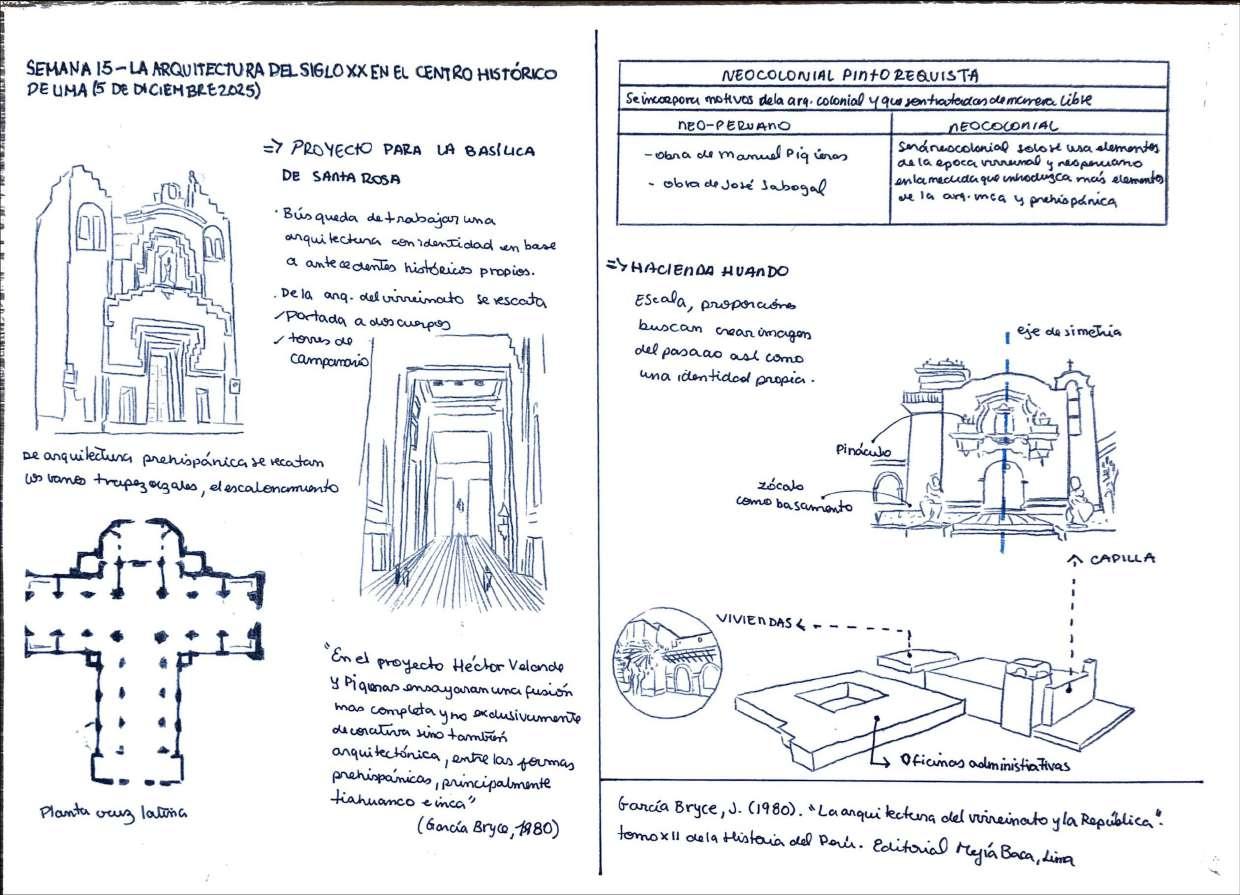 SEMANA 15 – LA ARQUITECTURA DEL SIGLO XX EN EL CENTRO HISTÓRICO
DE LIMA (5 DE DICIEMBRE 2025)
=> PROYECTO PARA LA BASÍLICA
DE SANTA ROSA
· Búsqueda de trabajar una
arquitectura con identidad en base
a antecedentes históricos propios.
· De la arq. del virreinato se rescata
✓ Portada a dos cuerpos
✓ torres de
campanario
De arquitectura prehispánica se recatan
los vanos trapezoizales, el escalonamiento
Planta cruz latina
"En el proyecto Héctor Velarde
y Piqueras ensayaran una fusión
mas completa y no exclusivamente
decorativa sino también
arquitectónica, entre las formas
prehispánicas, principalmente
tiahuanco e inca"
(García Bryce, 1980)
NEOCOLONIAL PINTOREQUISTA
Se incorpora motivos de la arq. colonial y que son tratados de manera libre
NEO-PERUANO
- obra de Manuel Piqueras
- obra de José Sabogal
NEOCOLONIAL
Será neocolonial solo si usa elementos
de la epoca virreinal y neoperuano
en la medida que introduzca más elementos
de la arq. inca y prehispánica
=> HACIENDA HUANDO
Escala, proporciones
buscan crear imagen
del pasado así como
una identidad propia.
eje de simetria
Pináculo
zócalo
como basamento
CAPILLA
VIVIENDAS
Oficinas administrativas
García Bryce, J. (1980). "La arquitectura del virreinato y la República".
tomo XII de la Historia del Perú. Editorial Mejía Baca, Lima